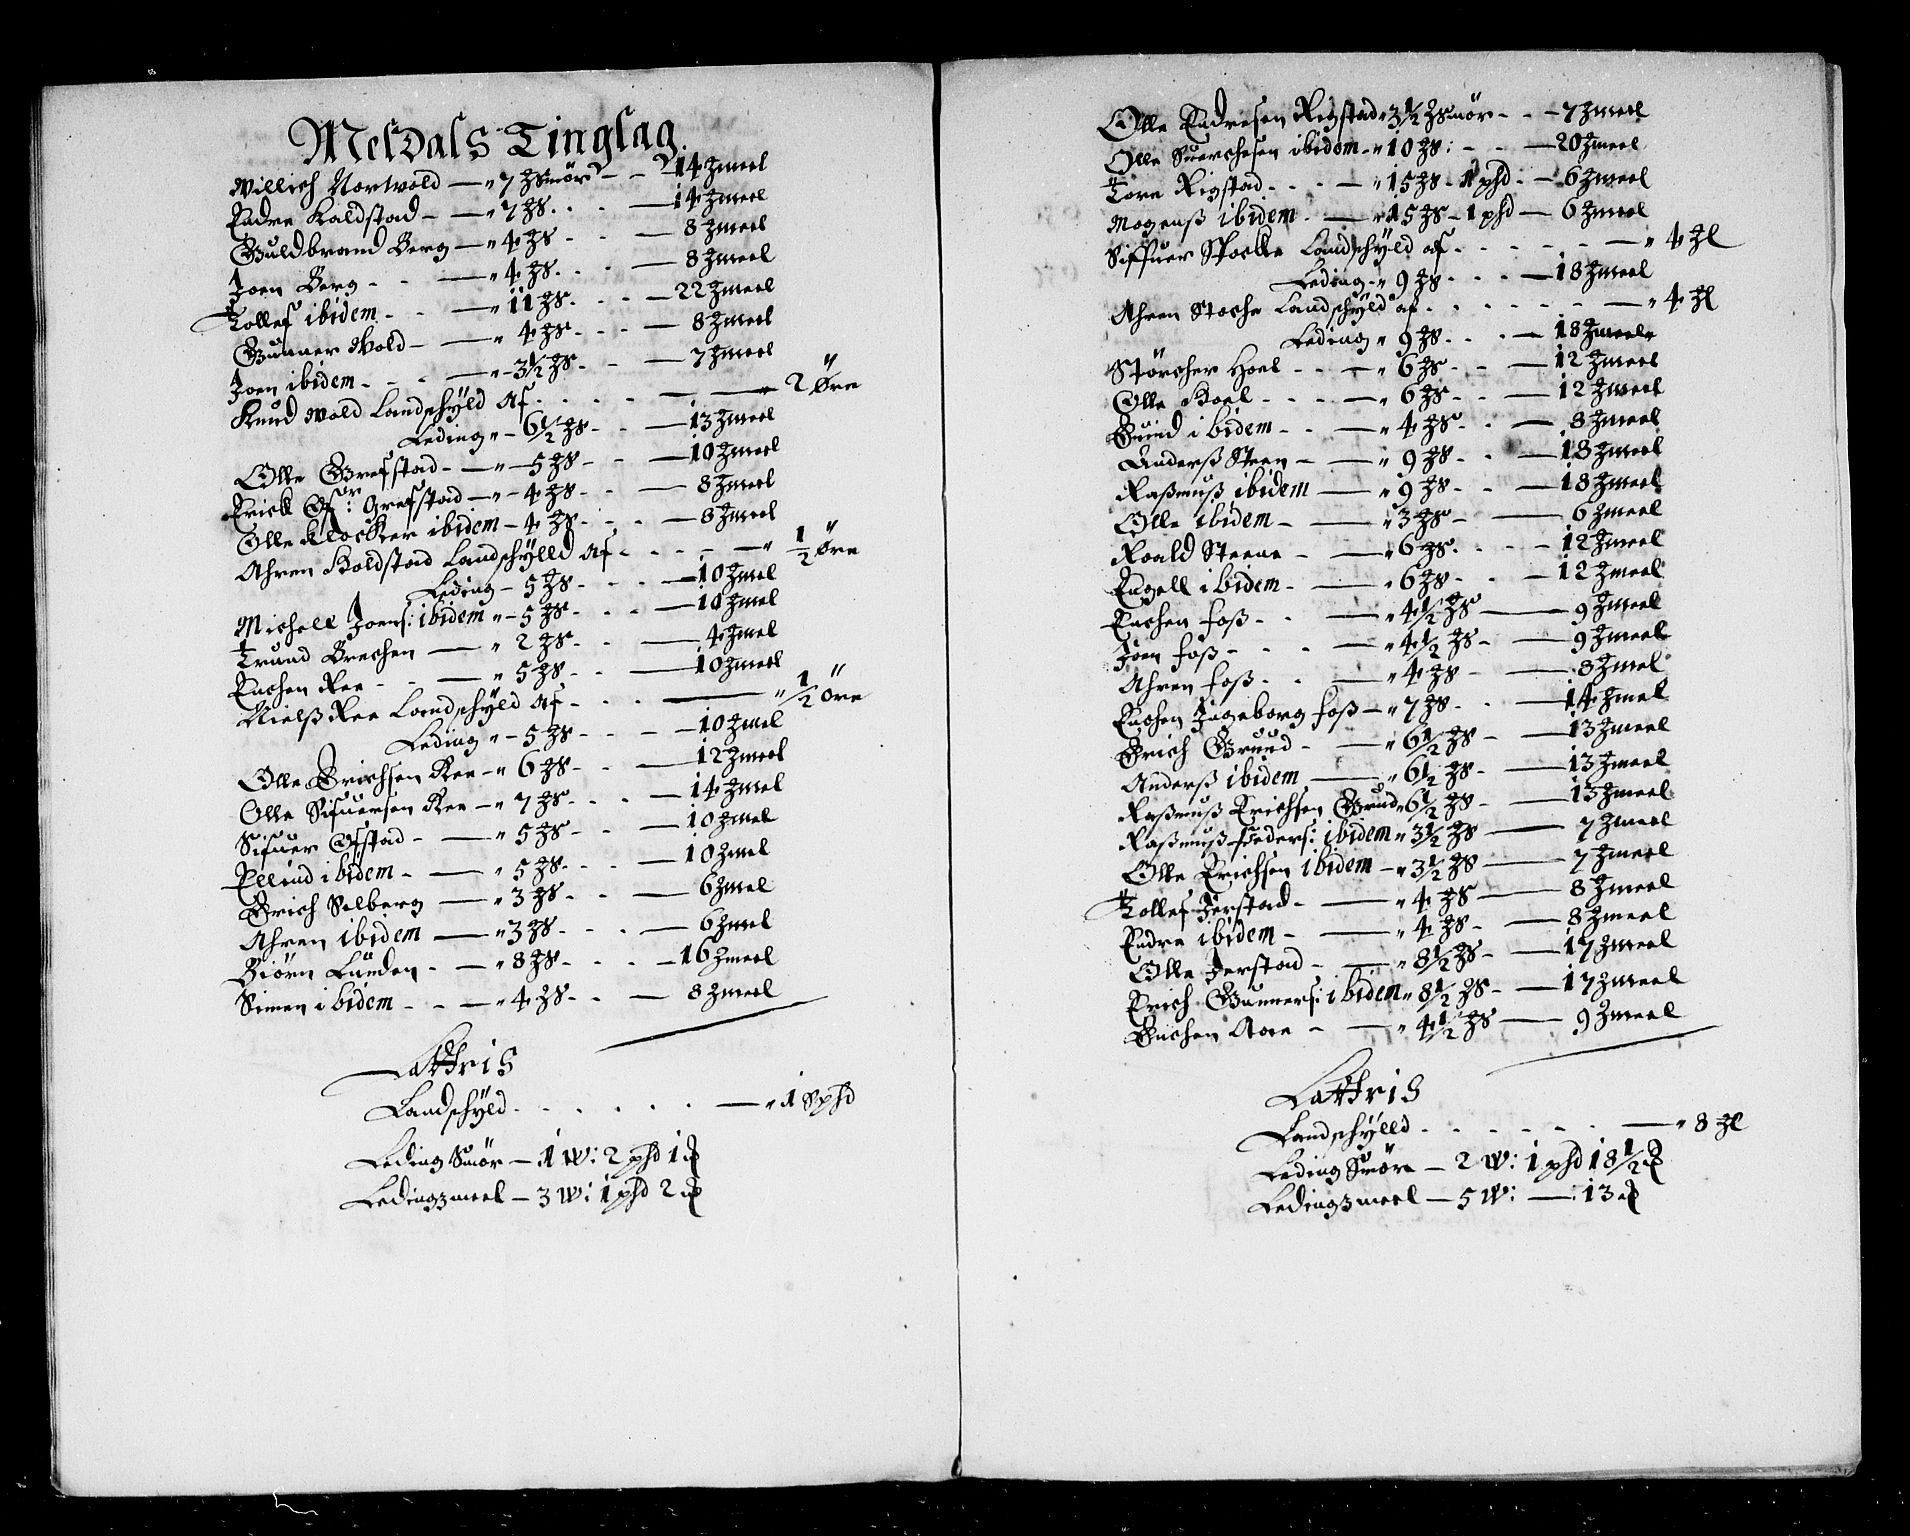 Meldals Tinglag.
Willich Nortvold — " 7 ℔ Smör - - 14 ℔meel
Endre Kaldstad - — " 7 ℔ . . — 14 ℔meel
Guldbrand Berg — " 4 ℔ - - — 8 ℔meel
Joen Berg - - — " 4 ℔ . . - — 8 ℔meel
Tollef ibidem - - — " 11 ℔ . . - — 22 ℔meel
Gunner Wold - — " 4 ℔ - . - — 8 ℔meel
Joen ibidem - . . — " - 3½ ℔ - - — 7 ℔meel
Knud Wold Landschÿld Af . . . . — — " 2 Öre
Leding " - 6½ ℔ - - — 13 ℔meel
Olle Grefstad - — " - 5 ℔ - - — 10 ℔meel
Erick Ofr: Grefstad — " - 4 ℔ - - — 8 ℔meel
Olle Klocker ibidem - 4 ℔ . - — 8 ℔meel
Ahren Koldstad Landschÿlld Af - . . - — " ½ Öre
Leding - 5 ℔ - . . — 10 ℔meel
Michell Joens: ibidem " - 5 ℔ . . - — 10 ℔mel
Trund Brechen — " 2 ℔ - . — 4 ℔mel
Enchen Ree - . — " 5 ℔ - . — 10 ℔meel
Nielß Ree Landschÿld Af - . . — " ½ Öre
Leding " - 5 ℔ - . . - - 10 ℔mel
Olle Erichsen Ree - " 6 ℔ - . — 12 ℔meel
Olle Sifuersen Ree - " 7 ℔ . . - — 14 ℔mel
Sifuer Ofstad - — " 5 ℔ - . — 10 ℔mel
Ellind ibidem - — " 5 ℔ . . - — 10 ℔mel
Erich Solberg — " 3 ℔ - . — 6 ℔mel
Ahren ibidem — " 3 ℔ - . - — 6 ℔mel
Biörn Lünden - — " 8 ℔ - . - - 16 ℔meel
Simen ibidem - - — " 4 ℔ - . — 8 ℔meel
Lattris
Landschÿld . . . . . — " 1 Sphd
Leding Smör — 1 W: 2 phd 1 ℔
Ledingzmeel — 3 W: 1 phd 2 ℔
Olle Endresen Rigstad " 3½ ℔ Smör - - - 7 ℔meel
Olle Suerchesen ibidem - " 10 ℔ : - — 20 ℔meel
Tore Rigstad - . . — " 15 ℔ - 1 phd - — 6 ℔meel
Mogenß ibidem - — " 15 ℔ - 1 phd — 6 ℔meel
Siffuer Stocke Landschÿld af . . . . — " 4 ℔
Leding - " 9 ℔ . . . — 18 ℔meel
Ahren Stoche Landschÿld af . . . . — " 4 ℔
Leding " 9 ℔ . . - — 18 ℔meel
Störcher Hoel - - — " 6 ℔ - . — 12 ℔meel
Olle Hoel - . . — " 6 ℔ - . — 12 ℔meel
Guind ibidem - - — " 4 ℔ - . — 8 ℔meel
Anderß Steen - — " 9 ℔ - . — 18 ℔meel
Raßmuß ibidem — " 9 ℔ - . — 18 ℔meel
Olle ibidem - — " 3 ℔ - — 6 ℔meel
Roald Steene - — " 6 ℔ . . - - 12 ℔meel
Engell ibidem - — " 6 ℔ - . - 12 ℔meel
Enchen Foß - . — " 4½ ℔ — 9 ℔meel
Joen Foß - . . — " 4½ ℔ - — 9 ℔meel
Ahren Foß - . — " 4 ℔ - — 8 ℔mel
Enchen Ingeborg Foß — " 7 ℔ - . — 14 ℔mel
Erich Grund - — " 6½ ℔ - — 13 ℔meel
Anderß ibidem — " 6½ ℔ - — 13 ℔meel
Raßmuß Erichsen Grund " 6½ ℔ - — 13 ℔meel
Raßmuß Peders: ibidem " 3½ ℔ — 7 ℔meel
Olle Erichsen ibidem - " 3½ ℔ — 7 ℔meel
Tollef Jerstad - — " 4 ℔ — 8 ℔meel
Endre ibidem - — " 4 ℔ - — 8 ℔meel
Olle Jerstad - — " 8½ ℔ - — 17 ℔meel
Erich Gunners: ibidem " 8½ ℔ - — 17 ℔meel
Enchen Aoen - — " 4½ ℔ — 9 ℔meel
Lattris
Landschÿlld . . . . . — " 8 ℔
Leding Smör — 2 W: 1 phd 18½ ℔
Ledingzmeel — 5 W: — : 13 ℔